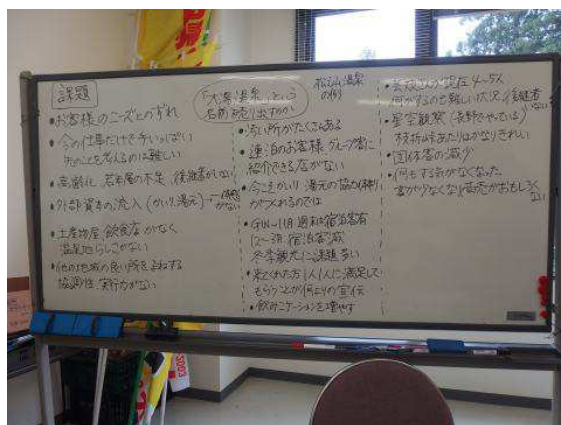 課題
・お客様のニーズとのずれ
・今の仕事だけで手いっぱい
先のことを考えるのは難しい
・高齢化、若年層の不足、後継者がいない
・外部資本の流入
・土産物屋、飲食店がなく
温泉地らしさがない
・他の地域の良い所をまねする
協調性、実行力がない
「大湯温泉」という
名前を売り出すのか
の例
・汚い所がたくさんある
・連泊のお客様、グループ客に
紹介できる店がない
・今こそかいり、湯元の協力体制
がつくれるのでは
・GW~11月 週末は宿泊客有
12~3月 宿泊客減
冬季観光に課題多い
・来てくれた方1人1人に満足して
もらうことが何よりの宣伝
・飲みニケーションを増やす
現在4~5人
何かするのも難しい状況
・星空観察(長野でやっている)
あたりはかなりきれい
・団体客の減少
・何もする気がなくなった
客が少なくなり商売がおもしろくない